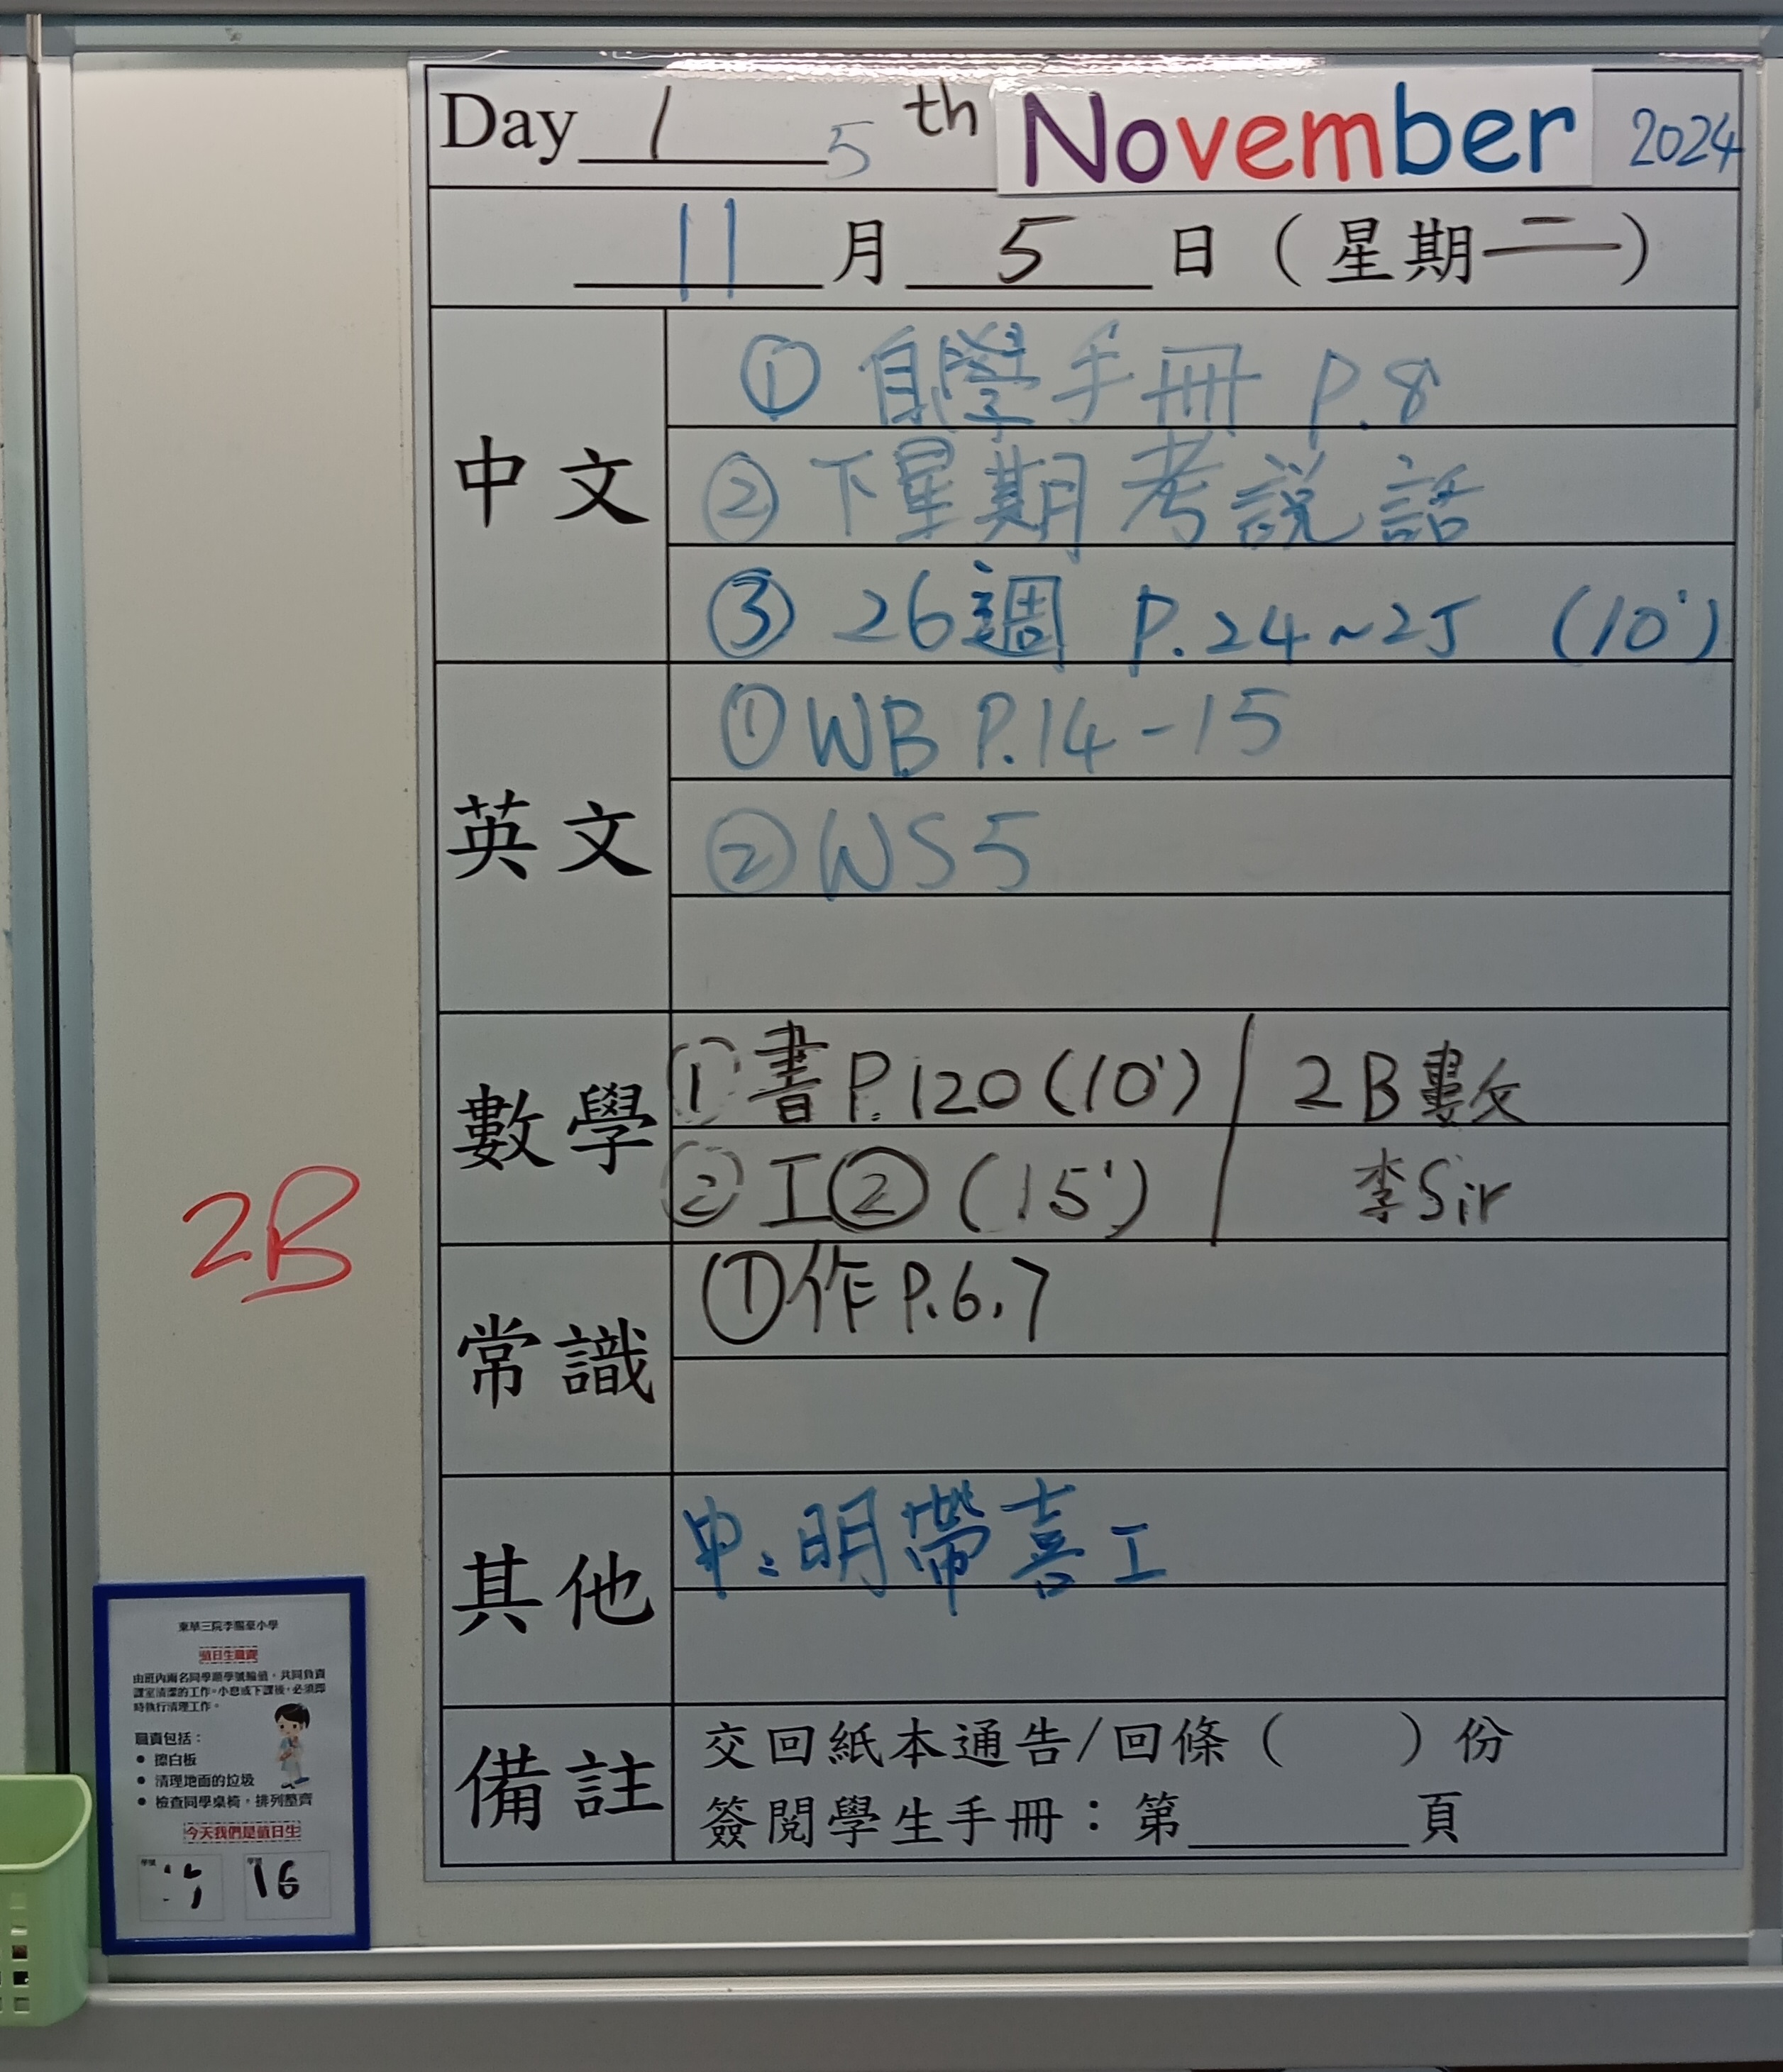 Day 1 5 th November 2024
11 月 5 日 ( 星期二 )
中文
① 自學手冊 P.8
② 下星期考說話
③ 26週 P.24~25 (10')
英文
① WB P.14-15
② WS5
數學
① 書P.120 (10') / 2B數
② 工② (15') / 李Sir
常識
① 作 P.6,7
其他
中:明帶喜工
備註
交回紙本通告/回條 (    ) 份
簽閱學生手冊:第____頁
2B
東華三院李賜豪小學
值日生職責
由班內兩名同學順學號輪值,共同負責
課室清潔的工作。小息或下課後,必須即
時執行清理工作。
職責包括:
● 擦白板
● 清理地面的垃圾
● 檢查同學桌椅,排列整齊
今天我們是值日生
學號 學號
16